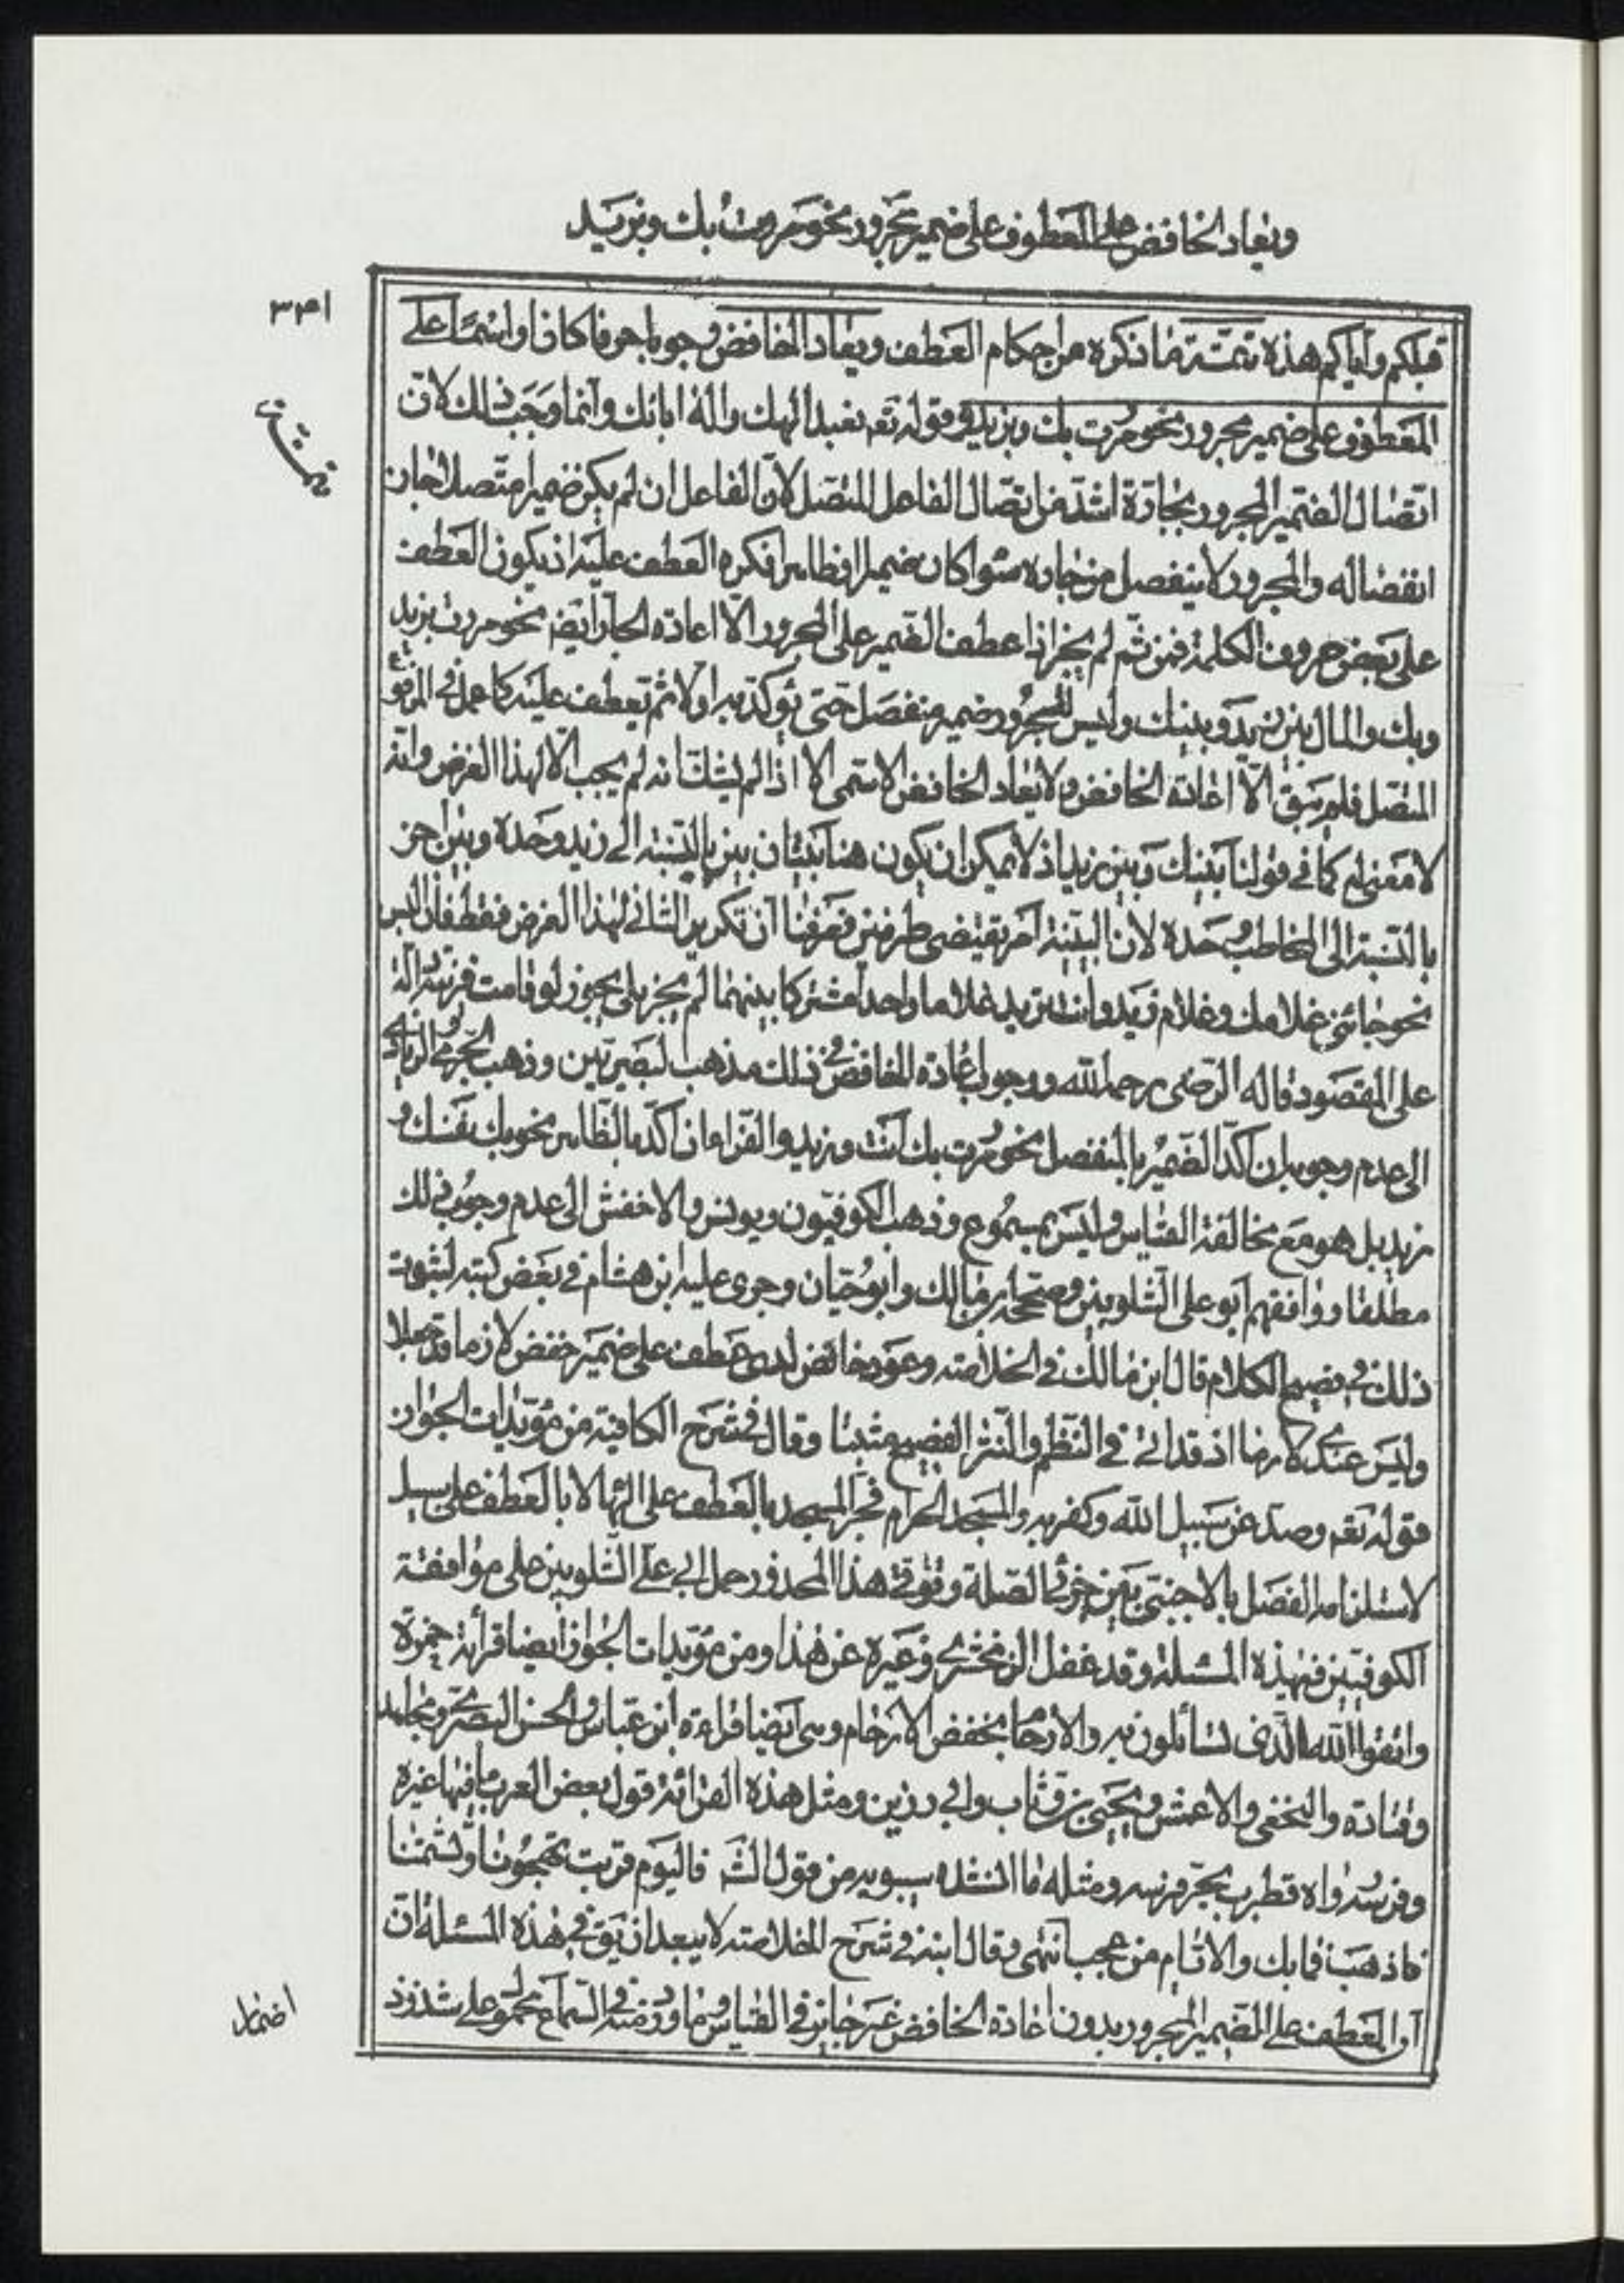 ويعاد الخافض على المعطوف على ضمير مجرور نحو مررت بك وبزيد
٣٣١
قبلكم واياكم هذه تتمّة ما ذكره من احكام العطف ويعاد الخافض وجوبا حرفا كان او اسمًا على
المعطوف على ضمير مجرور نحو مررت بك وبزيد وقوله تعه نعبد الهك واله ابائك وانما وجب ذلك لانّ
تتمّة
اتّصال الضّمير المجرور بجارّه اشدّ من اتصّال الفاعل المتصّل لانّ الفاعل ان لم يكن ضميرا متّصلا جاز
انفصاله والمجرور لا ينفصل من جاره سواء كان ضميرا او ظاهرا فكره العطف عليه اذ يكون العطف
على بعض حروف الكلمة فمن ثم لم يجز اذا عطف الضّمير على المجرور الّا اعادة الجار ايضه نحو مررت بزيد
وبك والمال بين زيد وبينك وليس للمجرور ضمير منفصل حتى يؤكّد به اولا ثم يعطف عليه كما عمل في المرفوع
المتصّل فلم يبق الّا اعادة الخافض ولا يعاد الخافض الاسمى الا اذا لم يشكّ انه لم يجب الّا لهذا الغرض وانّه
لا معنى له كما في قولنا بينك وبين زيد اذ لا يمكن ان يكون هنا بينان بين بالنّسبة الى زيد وحده وبين اخر
بالنّسبة الى المخاطب وحده لان البينيّة امر يقتضى طرفين فعرفنا ان تكرير الثانى لهذا الغرض فقط فان البس
نحو جائنى غلامك وغلام زيد وانت تريد غلاما واحدا مشتركا بينهما لم يجز بل يجوز لو قامت قرينة دالّة
على المقصود قاله الرّضى رحمه الله ووجوب اعادة الخافض في ذلك مذهب البصريّين وذهب الجرمى والزيادى
الى عدم وجوبه ان اكّد الضّمير بالمنفصل نحو مررت بك انت وزيد والفراء ان اكّد بالظّاهر نحو بك نفسك و
زيد بل هو مع مخالفة القياس وليس بمسموع وذهب الكوفيّون ويونس والاخفش الى عدم وجوب ذلك
مطلقا ووافقهم ابو على الشّلوبين وصحّحه ابن مالك وابو حيّان وجرى عليه ابن هشام في بعض كتبه لثبوت
ذلك في فصيح الكلام قال ابن مالك في الخلاصة وعود خافض لدى عطف على ضمير خفض لازما قد جعلا
وليس عندى لازما اذ قد اتى في النّظم والنّثر الفصيح مثبتا وقال في شرح الكافية من مؤيّدات الجواز
قوله تعه وصدّ عن سبيل الله وكفر به والمسجد الحرام فجرّ المسجد بالعطف على الهاء لا بالعطف على سبيل
لاستلزامه الفصل بالاجنبىّ بين جزئى الصّلة وتوقى هذا المحذور حمل ابى على الشّلوبين على موافقة
الكوفيّين في هذه المسئلة وقد غفل الزمخشرى وغيره عن هذا ومن مؤيدات الجواز ايضا قرأئة حمزة
واتقوا الله الّذى تسائلون به والارحام بخفض الارحام وهى ايضا قراءة ابن عباس والحسن البصرى ومجاهد
وقتادة والنخعى والاعمش ويحيى بن وثّاب وابى رزين ومثل هذه القرائة قول بعض العرب ما فيها غيره
وفرسه رواه قطرب بجرّ فرسه ومثله ما انشده سيبويه من قول الشّه فاليوم قربت تهجونا وتشتمنا
فاذهب فما بك والايّام من عجب انتهى وقال ابنه في شرح الخلاصة لا يبعد ان يق في هذه المسئلة ان
ان العطف على الضّمير المجرور بدون اعادة الخافض غير جايز في القياس وما ورد منه في السّماع محمول على شذوذ
اضمار